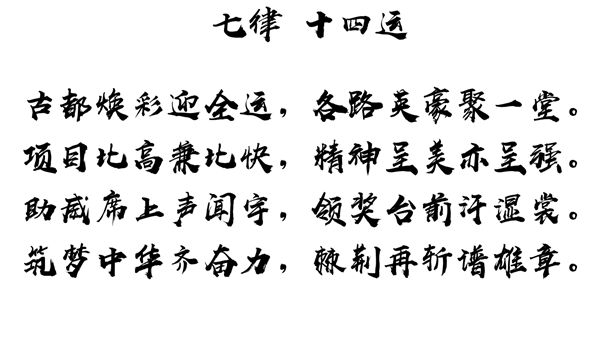 七律 十四运
古都焕彩迎全运，各路英豪聚一堂。
项目比高兼比快，精神呈美亦呈强。
助威席上声闻宇，领奖台前汗湿裳。
筑梦中华齐奋力，棘荆再斩谱雄章。